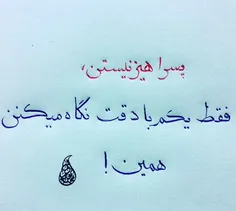 پسرا هیز نیستن،
فقط یکم با دقت نگاه میکنن
همین!